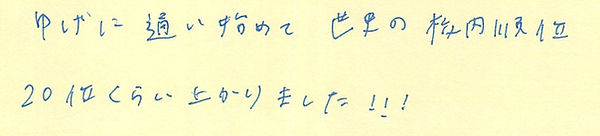 ゆげに通い始めて 世史の校内順位
20位くらい上がりました!!!